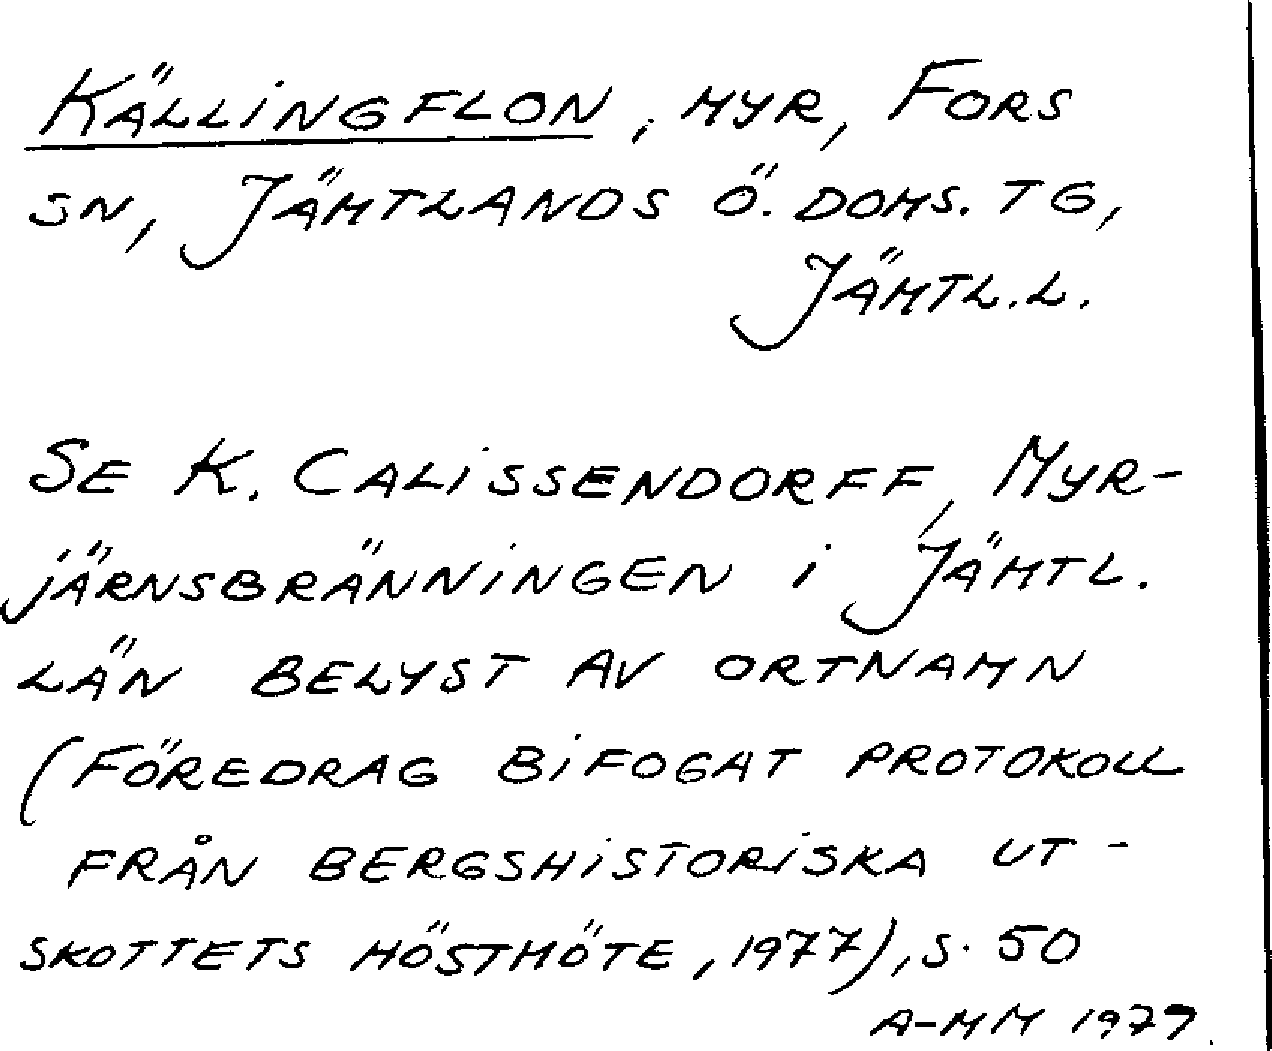 KÄLLiNGFLON, MYR, FORS
SN, JÄMTLANDS Ö. DOMS. TG,
JÄMTL.L.
SE K. CALiSSENDORFF, MYR-
JÄRNSBRÄNNiNGEN i JÄMTL.
LÄN BELYST AV ORTNAMN
(FÖREDRAG BiFOGAT PROTOKOLL
FRÅN BERGSHiSTORiSKA UT-
SKOTTETS HÖSTMÖTE, 1977), S. 50
A-MM 1979.